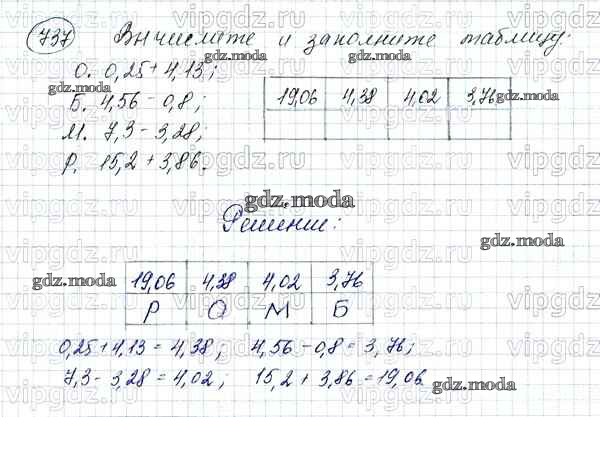 737 Вычислите и заполните таблицу:
О. 0,25 + 4,13;
Б. 4,56 - 0,8;
М. 7,3 - 3,28;
Р. 15,2 + 3,86.
19,06 4,38 4,02 3,76
gdz.moda
Решение:
19,06 4,38 4,02 3,76
Р О М Б
0,25 + 4,13 = 4,38; 4,56 - 0,8 = 3,76;
7,3 - 3,28 = 4,02; 15,2 + 3,86 = 19,06
gdz.moda
vipgdz.ru